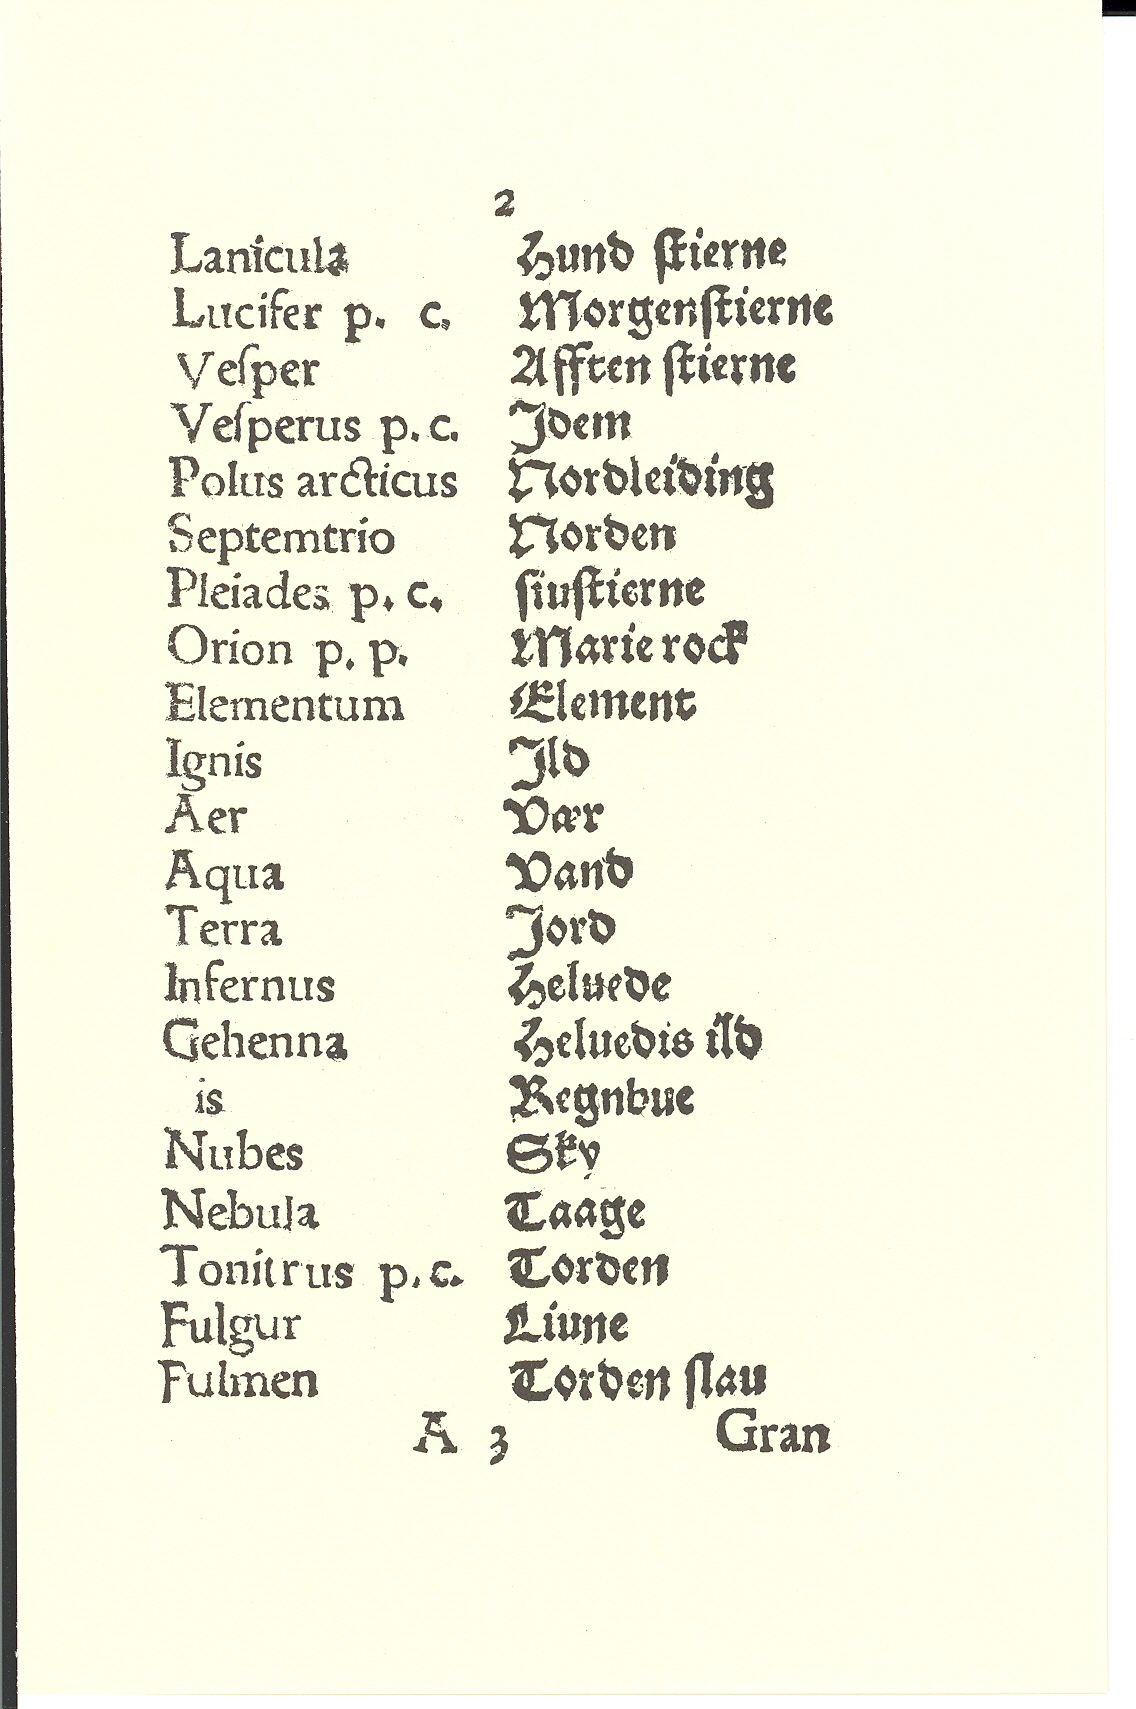 2
Lanicula Hund stierne
Lucifer p. c. Morgenstierne
Veſper Afften ſtierne
Veſperus p. c. Idem
Polus arcticus Nordleiding
Septemtrio Norden
Pleiades p. c. ſiuſtierne
Orion p. p. Marie rock
Elementum Element
Ignis Ild
Aer Vær
Aqua Vand
Terra Jord
Infernus Heluede
Gehenna Heluedis ild
is Regnbue
Nubes Sky
Nebula Taage
Tonitrus p. c. Torden
Fulgur Liune
Fulmen Torden ſlau
A 3 Gran